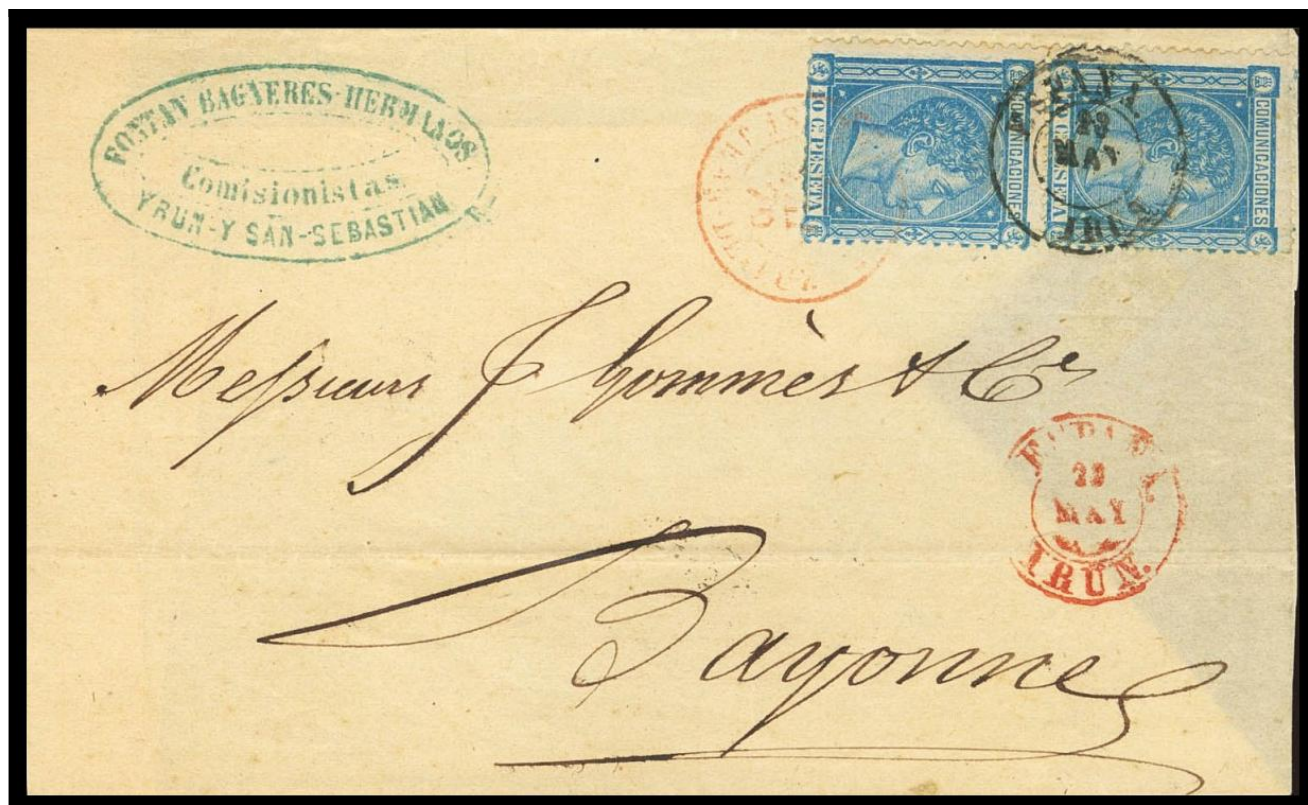 FONTAN BAGNERES-HERMANOS
Comisionistas
YRUN-Y SAN-SEBASTIAN
10 Cs PESETA
COMUNICACIONES
Cs PESETA
COMUNICACIONES
23
MAY
IRUN
Messieurs J Gommès & Cie
ESPAÑA
23
MAY
IRUN.
Bayonne